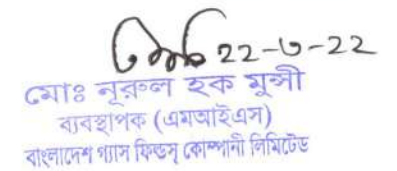 22-৩-22
মোঃ নূরুল হক মুন্সী
ব্যবস্থাপক (এমআইএস)
বাংলাদেশ গ্যাস ফিল্ডস্ কোম্পানী লিমিটেড